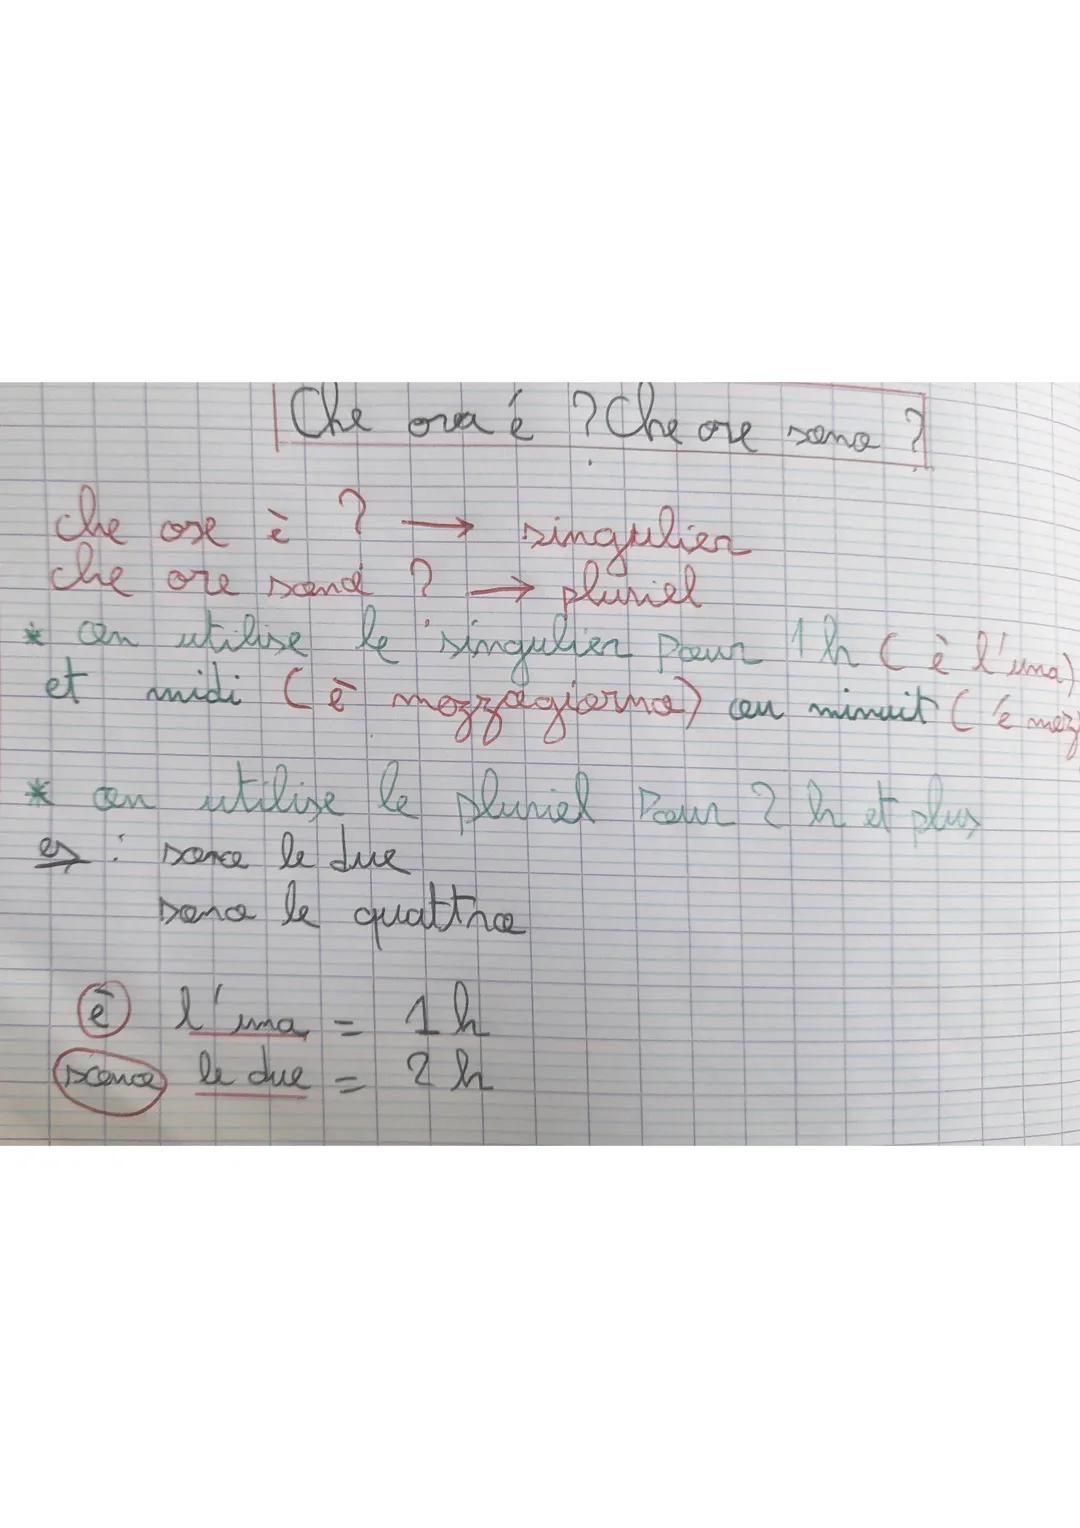 Che ora é ? Che ore sono ?
che ore è ? → singulier
che ore sono ? → pluriel
* on utilise le singulier pour 1 h ( è l'una)
et midi ( è mezzogiorno) ou minuit ( é mez
* on utilise le pluriel pour 2 h et plus
es : sono le due
sono le quattro
è l'una = 1 h
sono le due = 2 h